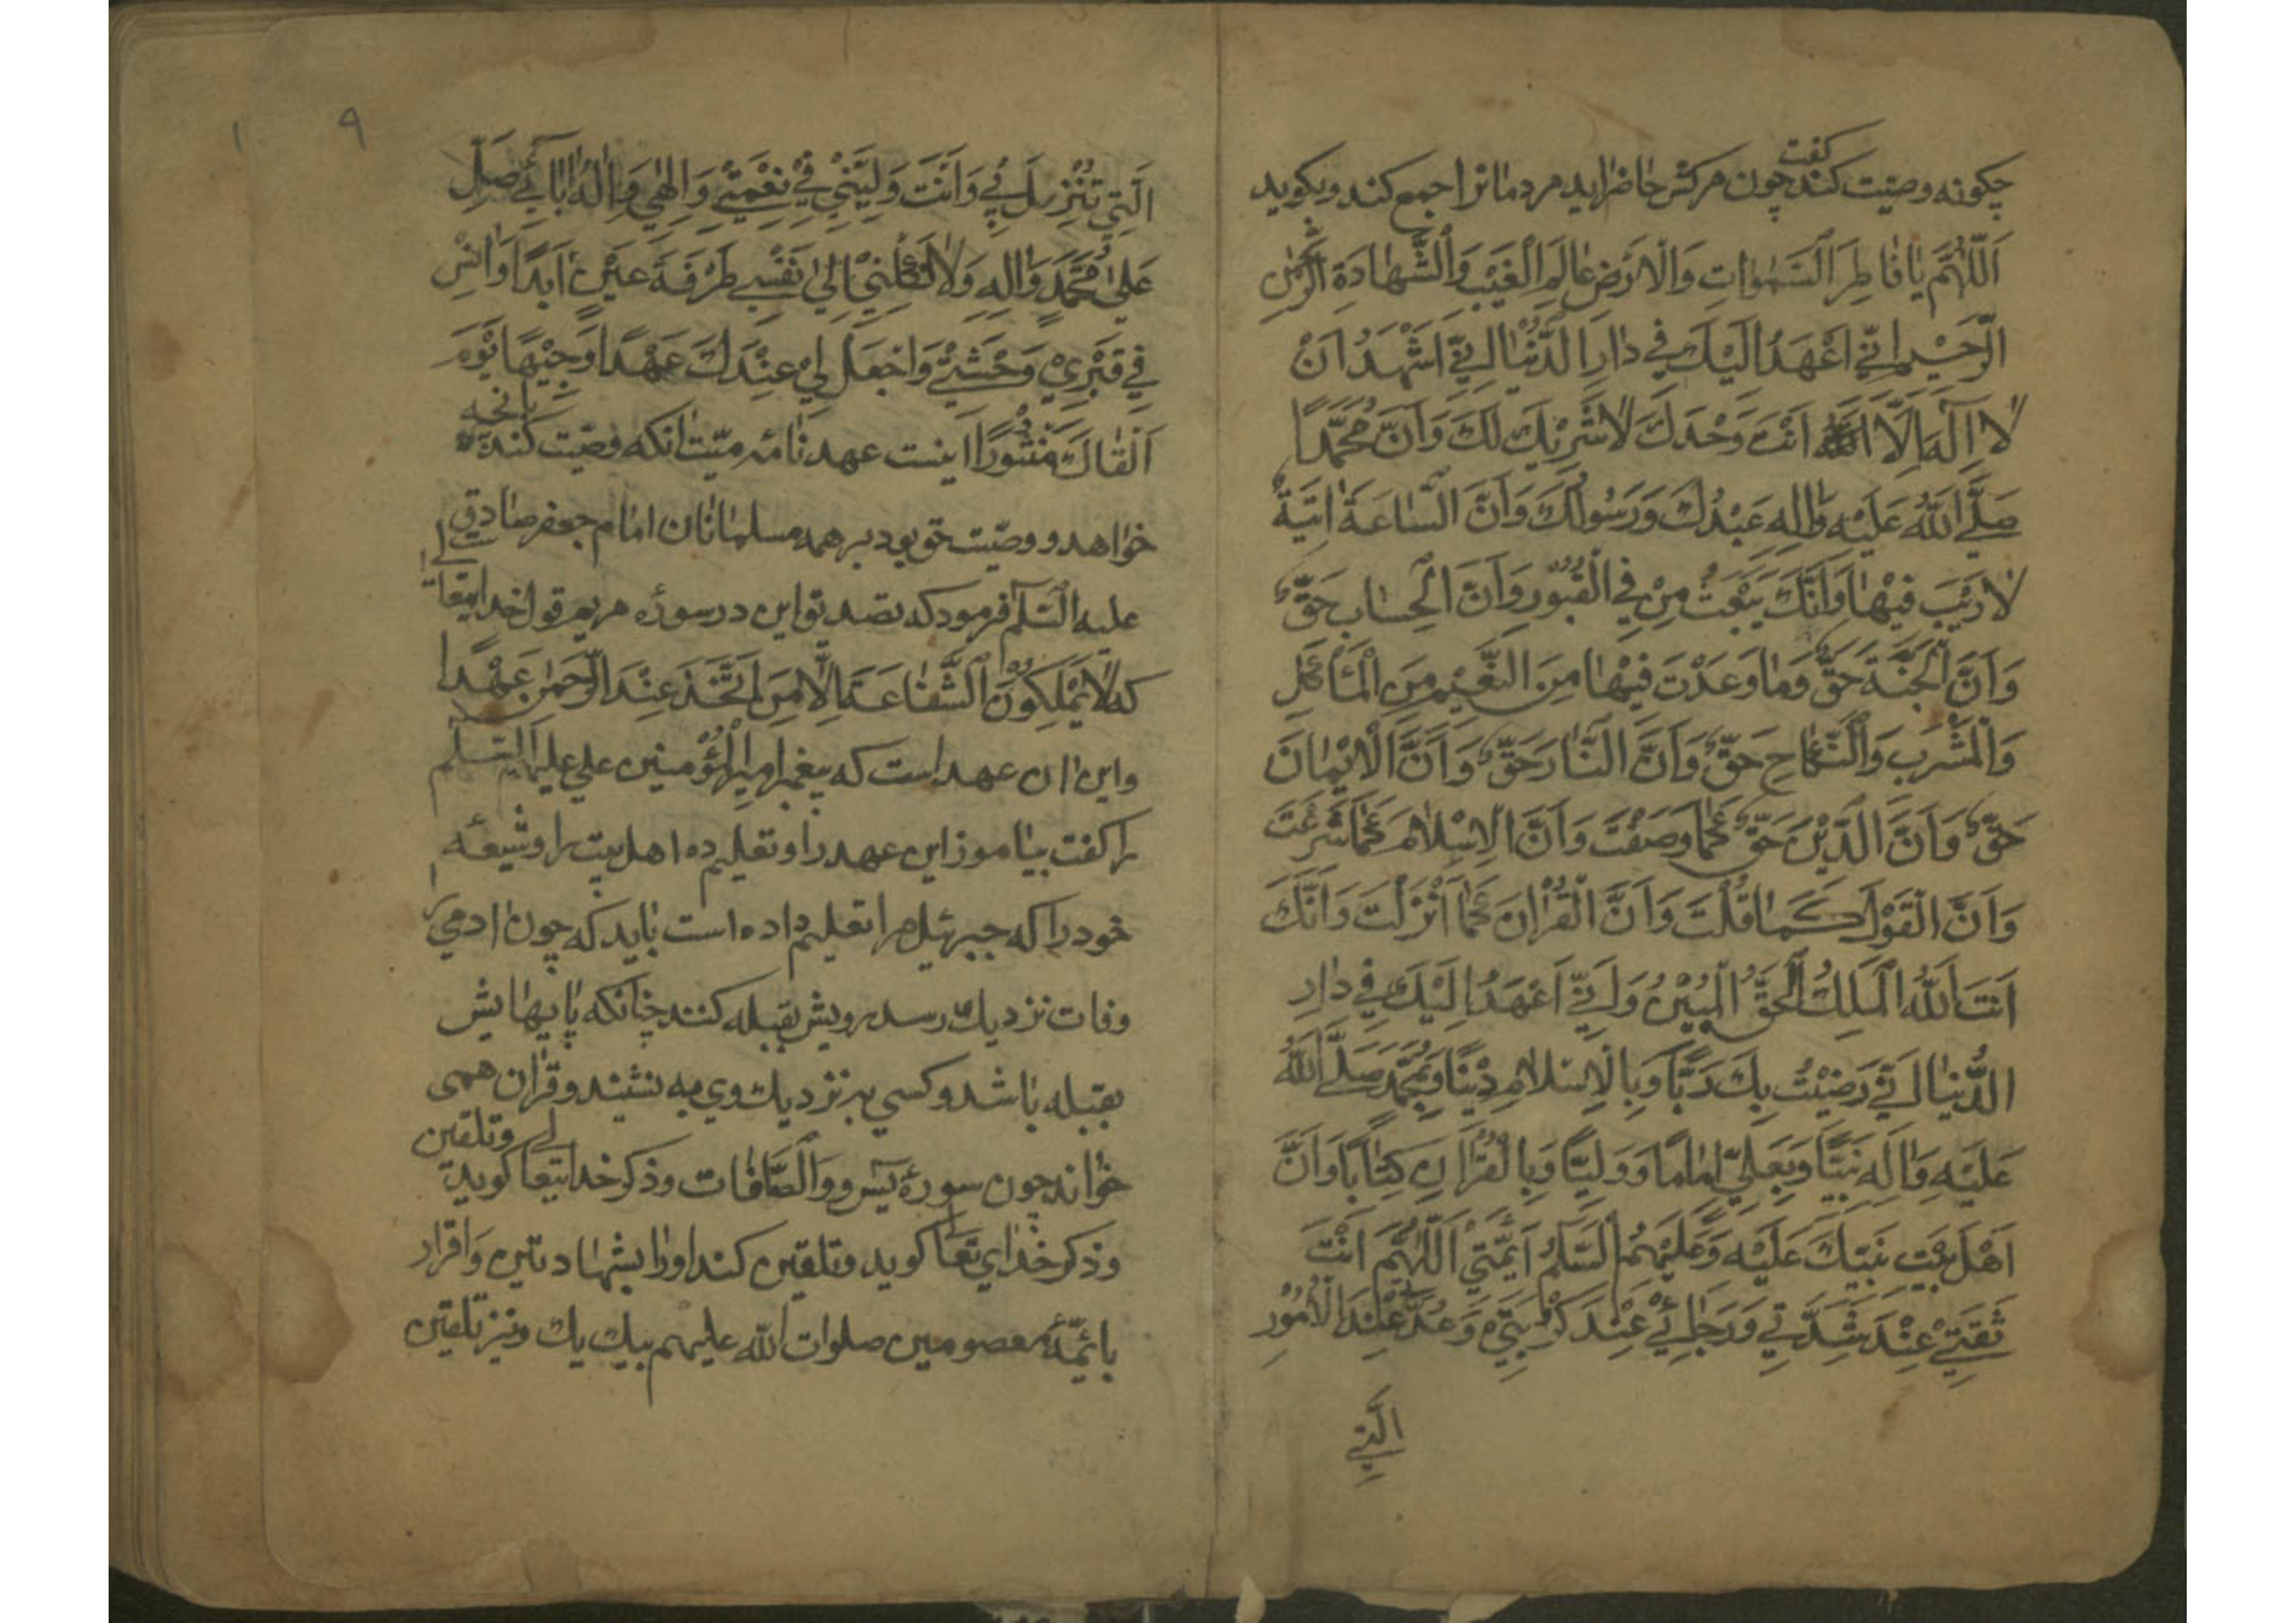 چکونه وصیّت کند کفت چون مرکش حاضر اید مردمانرا جمع کند وبکوید
اَللّٰهُمَّ یٰا فٰاطِرَ السَّمٰوٰاتِ وَالْاَرْضِ عٰالِمَ الْغَیْبِ وَالشَّهٰادَةِ الرَّحْمٰنِ
الرَّحیٖمِ اِنّیٖ اَعْهَدُ اِلَیْكَ فیٖ دٰارِ الدُّنْیٰا اِنّیٖ اَشْهَدُ اَنْ
لٰا اِلٰهَ اِلَّا اَنْتَ وَحْدَكَ لٰا شَرِیْكَ لَكَ وَاَنَّ مُحَمَّدًا
صَلَّی اللّٰهُ عَلَیْهِ وَاٰلِهِ عَبْدُكَ وَرَسُوْلُكَ وَاَنَّ السّٰاعَةَ اٰتِیَةٌ
لٰا رَیْبَ فیٖهٰا وَاَنَّكَ تَبْعَثُ مَنْ فِی الْقُبُوْرِ وَاَنَّ الْحِسٰابَ حَقٌّ
وَاَنَّ الْجَنَّةَ حَقٌّ وَمٰا وَعَدْتَ فیٖهٰا مِنَ النَّعیٖمِ مِنَ الْمَأْكَلِ
وَالْمَشْرَبِ وَالنِّكٰاحِ حَقٌّ وَاَنَّ النّٰارَ حَقٌّ وَاَنَّ الْایٖمٰانَ
حَقٌّ وَاَنَّ الدّیْنَ حَقٌّ كَمٰا وَصَفْتَ وَاَنَّ الْاِسْلٰامَ كَمٰا شَرَعْتَ
وَاَنَّ الْقَوْلَ كَمٰا قُلْتَ وَاَنَّ الْقُرْاٰنَ كَمٰا اَنْزَلْتَ وَاَنَّكَ
اَنْتَ اللّٰهُ الْمَلِكُ الْحَقُّ الْمُبیٖنُ وَاِنّیٖ اَعْهَدُ اِلَیْكَ فیٖ دٰارِ
الدُّنْیٰا اِنّیٖ رَضیٖتُ بِكَ رَبًّا وَبِالْاِسْلٰامِ دیٖنًا وَبِمُحَمَّدٍ صَلَّی اللّٰهُ
عَلَیْهِ وَاٰلِهِ نَبِیًّا وَبِعَلِیٍّ اِمٰامًا وَوَلِیًّا وَبِالْقُرْاٰنِ كِتٰابًا وَاَنَّ
اَهْلَ بَیْتِ نَبِیِّكَ عَلَیْهِ وَعَلَیْهِمُ السَّلٰمُ اَئِمَّتیٖ اَللّٰهُمَّ اَنْتَ
ثِقَتیٖ عِنْدَ شِدَّتیٖ وَرَجٰائیٖ عِنْدَ كُرْبَتیٖ وَعُدَّتیٖ عِنْدَ الْاُمُوْرِ
الَّتیٖ
۹
الَّتیٖ تَنْزِلُ بیٖ وَاَنْتَ وَلِیّیٖ فیٖ نِعْمَتیٖ وَاِلٰهیٖ وَاِلٰهُ اٰبٰائیٖ صَلِّ
عَلٰی مُحَمَّدٍ وَاٰلِهِ وَلٰا تَكِلْنیٖ اِلٰی نَفْسیٖ طَرْفَةَ عَیْنٍ اَبَدًا وَاٰنِسْ
فیٖ قَبْرِیْ وَحْشَتیٖ وَاجْعَلْ لیٖ عِنْدَكَ عَهْدًا یَوْمَ
اَلْقٰاكَ مَنْشُوْرًا اینست عهد نامهٔ میّت انکه وصیّت کند بانچه
خواهد و وصیّت حق بود بر همه مسلمانان امام جعفر صادق
علیه السّلٰم فرمود که تصدیق این در سورهٔ مریم قول خدایتعالی
که لٰا یَمْلِكُوْنَ الشَّفٰاعَةَ اِلّٰا مَنِ اتَّخَذَ عِنْدَ الرَّحْمٰنِ عَهْدًا
واین ان عهد است که پیغمبر امیرالمؤمنین علی علیهما السّلٰم
را کفت بیاموز این عهد را وتعلیم ده اهل بیت را وشیعهٔ
خود را که جبرئیل مرا تعلیم داده است باید که چون ادمی را
وفات نزدیك رسد رویش بقبله کنند چنانکه پایهایش
بقبله باشد وکسی به نزدیك وی به نشیند وقران همی
خواند چون سورهٔ یٰس و وَالصّٰافّٰات وذکر خدایتعالی کوید وتلقین
وذکر خدای تعا کوید وتلقین کند اورا بشهادتین واقرار
بائمّهٔ معصومین صلوات اللّٰه علیهم بیك یك ونیز تلقین